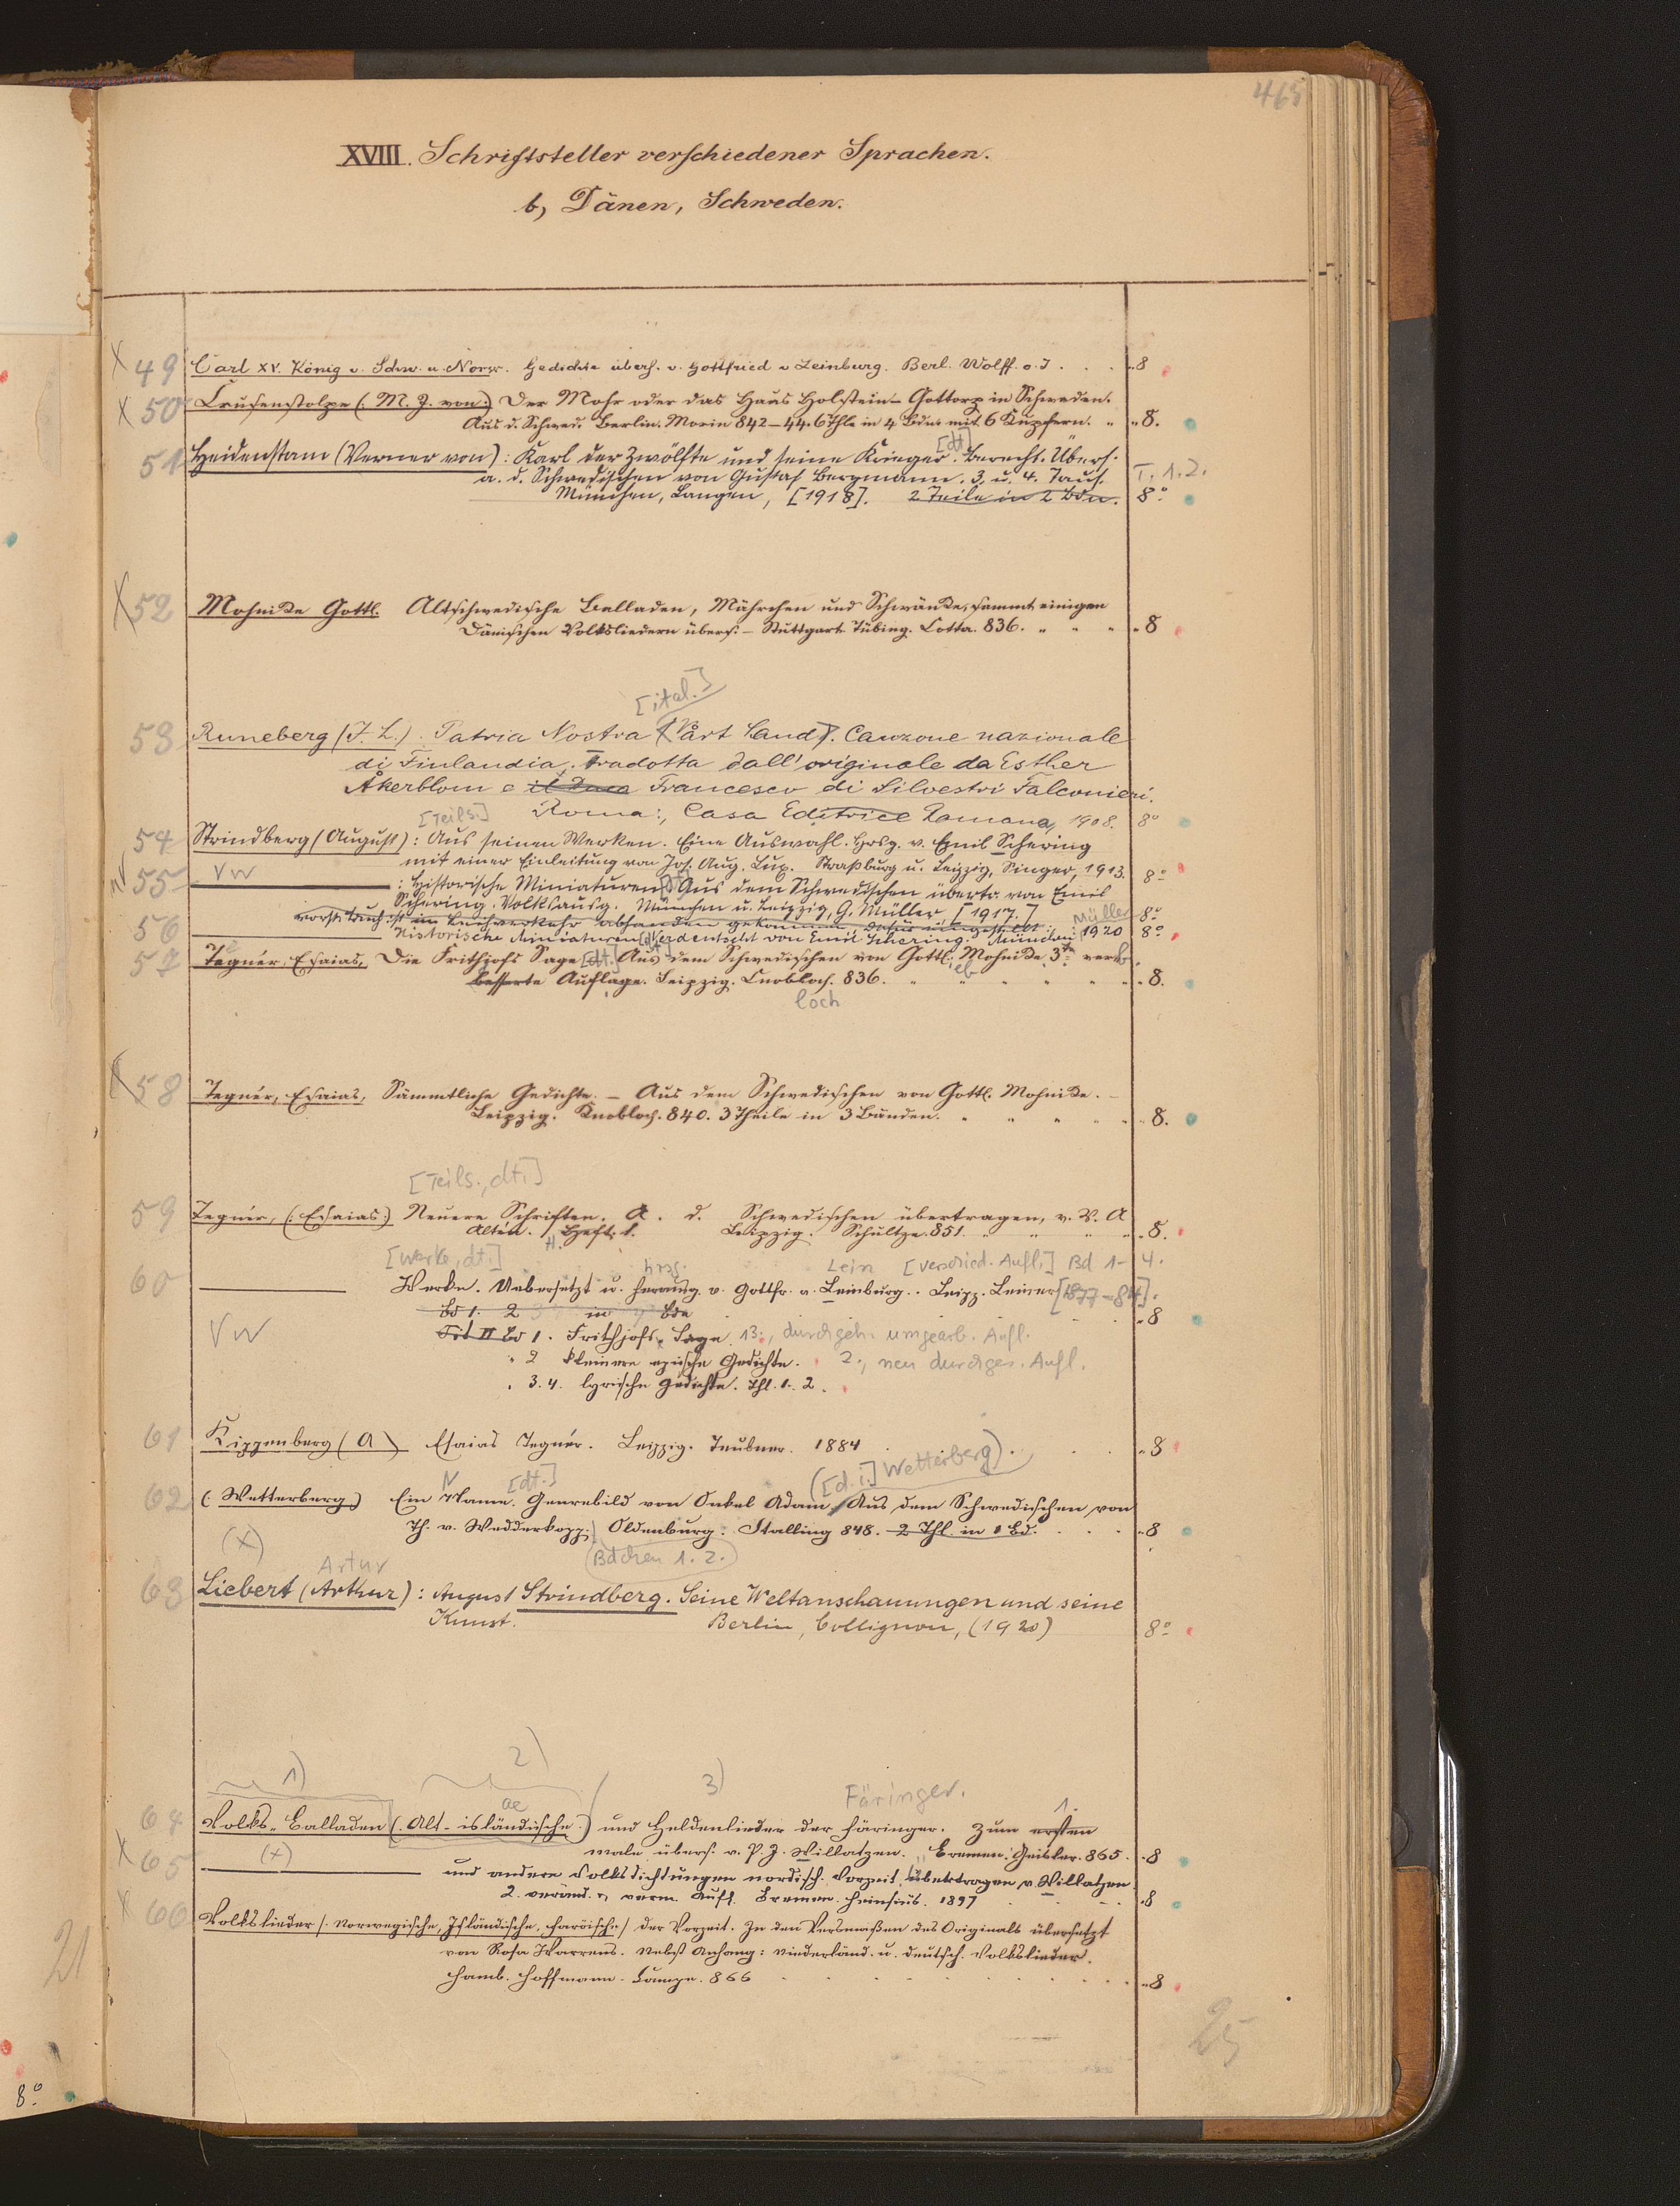 465
XVIII. Schriftsteller verschiedener Sprachen.
b, Dänen, Schweden.
X 49 Carl XV. König v. Schw. u. Norw. Gedichte übers. v. Gottfried v Leinburg. Berl. Wolff. o. J . . . „8
X 50 Crusenstolpe (: M. J. von :) Der Mohr oder das Haus Holstein-Gottorp in Schweden.
Aus d. Schwed. Berlin. Morin 842–44. 6 Thle in 4 Bdn. mit 6 Kupfern. „ „8.
51 Heidenstam (Verner von): Karl der Zwölfte und seine Krieger. [dt] Berecht. Übers.
a. d. Schwedischen von Gustaf Bergmann. 3. u. 4. Taus. T. 1.2.
München, Langen, [1918]. 2 Teile in 2 Bdn. 8°
X 52 Mohnike Gottl. Altschwedische Balladen, Mährchen und Schwänke, sammt einigen
Dänischen Volksliedern übers. – Stuttgart. Tübing. Cotta. 836. „ „ „ „8
[ital.]
53 Runeberg (J. L.). Patria Nostra (Vårt Land). Canzone nazionale
di Finlandia. Tradotta dall'originale da Esther
Åkerblom e il Duca Francesco di Silvestri Falconieri.
Roma:, Casa Editrice Romana, 1908. 8°
[Teils.]
54 Strindberg (August): Aus seinen Werken. Eine Auswahl. Hrsg. v. Emil Schering
mit einer Einleitung von Jos. Aug. Lux. Straßburg u. Leipzig, Singer, 1913. 8°
55 VW : Historische Miniaturen [dt] Aus dem Schwedischen übertr. von Emil
Schering. Volksausg. München u. Leipzig, G. Müller, [1917.] 8°
vorst. Buch ist im Leihverkehr abhanden gekommen, dafür eingestellt: Müller
56 Historische Miniaturen [dt] Verdeutscht von Emil Schering. München: 1920 8°
57 Tegnér, Esaias, Die Frithjofs Sage [dt.] Aus dem Schwedischen von Gottl. Mohnike. 3te verb.
besserte Auflage. Leipzig. Cnobloch. 836. „ „ „ „ „ „8.
loch
X 58 Tegnér, Esaias, Sämmtliche Gedichte. – Aus dem Schwedischen von Gottl. Mohnike. –
Leipzig. Knobloch. 840. 3 Theile in 3 Bänden. „ „ „ „ „8.
[Teils., dt.]
59 Tegnér, (: Esaias :) Neuere Schriften. A. d. Schwedischen übertragen, v. V. A
Altén. Heft. 1. Leipzig. Schultze. 851. „ „ „ „8.
H.
[Werke, dt.] hrsg. Lein [verschied. Aufl.] Bd 1–4.
60 Werke. Uebersetzt u. herausg. v. Gottfr. v. Leinburg.. Leipz. Leiner [1877–84].
Bd 1. 2 in Bde „8
VW Tit II Bd 1. Frithjofs Sage 13., durchgeh. umgearb. Aufl.
„ 2 kleinere epische Gedichte. 2., neu durchges. Aufl.
„ 3. 4. lyrische Gedichte. Thl. 1. 2.
61 Kippenberg (A) Esaias Tegnér. Leipzig. Teubner. 1884 „8
N [dt.] ([d. i.] Wetterberg).
62 (: Wetterberg :) Ein Name. Genrebild von Onkel Adam. Aus dem Schwedischen von
Th. v. Wedderkopp. Oldenburg. Stalling 848. 2 Thl. in 1 Bd. „8
(X) Bdchen 1. 2.
Artur
63 Liebert (Arthur): August Strindberg. Seine Weltanschauungen und seine
Kunst. Berlin, Collignon, (1920) 8°
1) 2) 3) Färinger. 1.
ae
64 Volks-Balladen (: Alt-isländische :) und Heldenlieder der Färinger. Zum ersten
male übers. v. P. J. Willatzen. Bremen. Geisler. 865. „8
X 65 (+) und andere Volksdichtungen nordisch. Vorzeit, übertragen v. Willatzen
2. veränd. u. verm. Aufl. Bremen. Heinsius. 1897 „8
X 66 Volkslieder /: Norwegische, Isländische, Faröische / der Vorzeit. In den Versmaßen des Originals übersetzt
von Rosa Warrens. Nebst Anhang: Niederländ. u. deutsch. Volkslieder.
Hamb. Hoffmann. Campe. 866 „8
21
25
8°